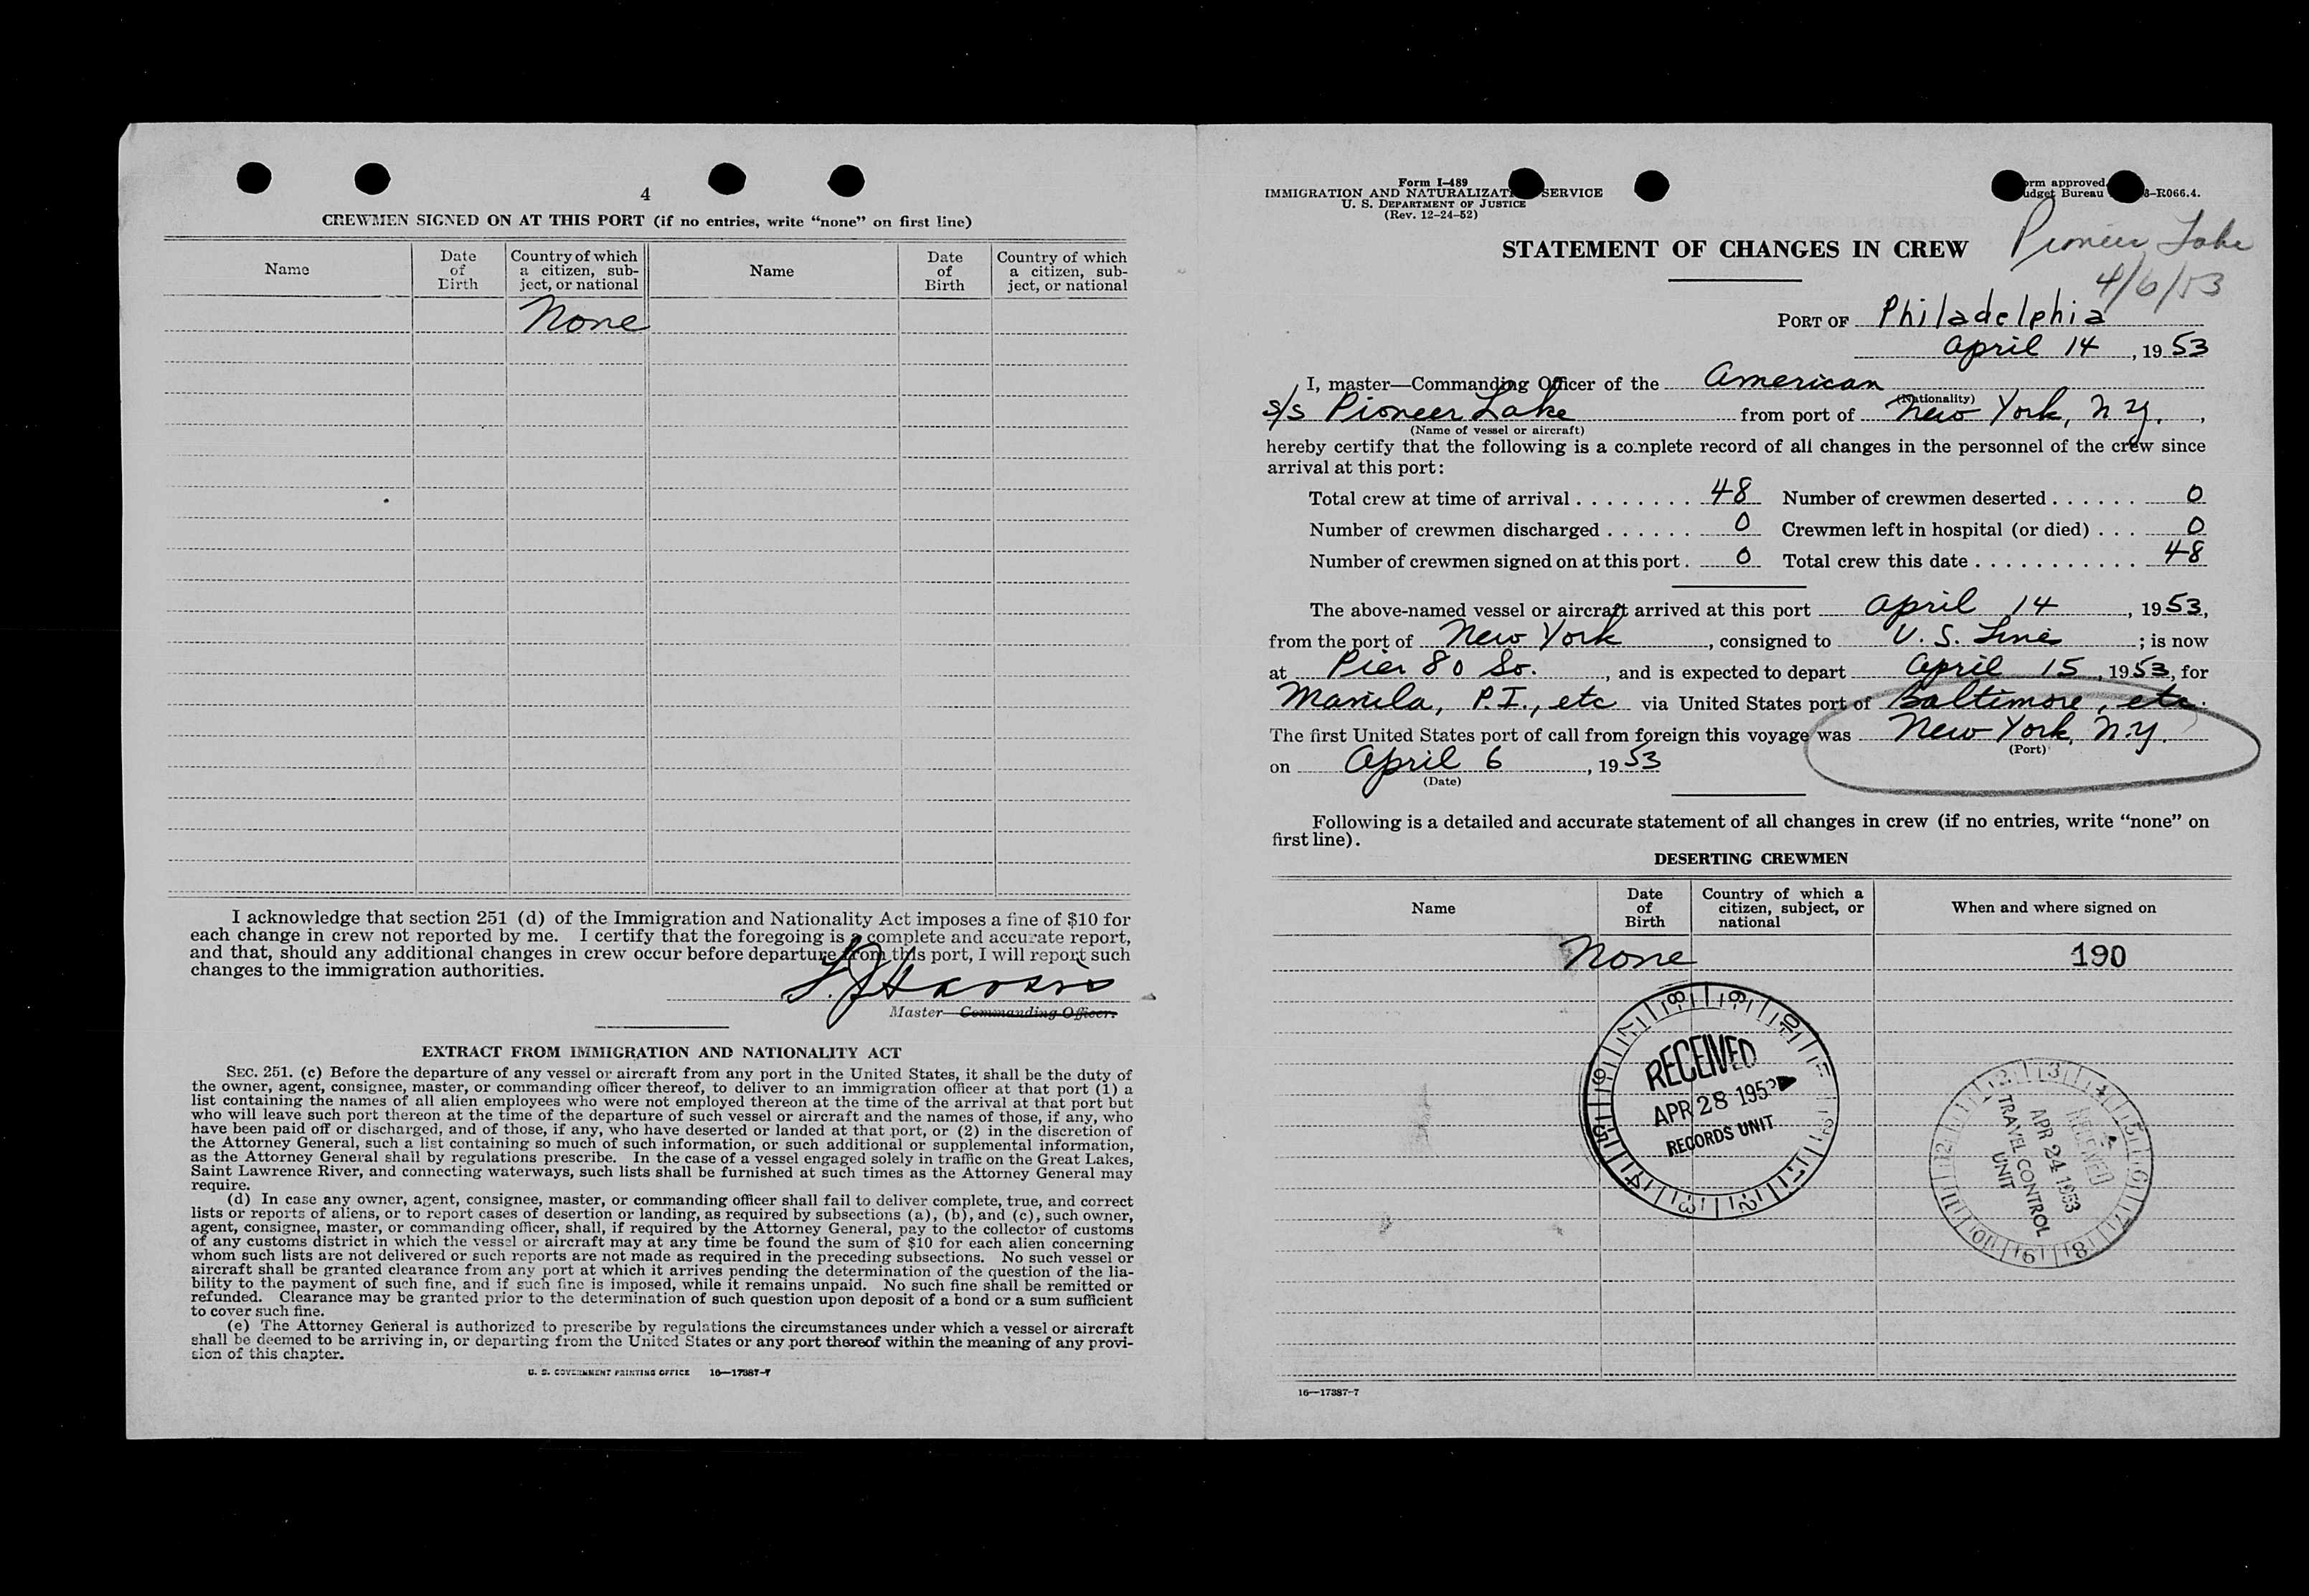 4
CREWMEN SIGNED ON AT THIS PORT (if no entries, write “none” on first line)
Name
Date of Birth
Country of which a citizen, subject, or national
Name
Date of Birth
Country of which a citizen, subject, or national
None
I acknowledge that section 251 (d) of the Immigration and Nationality Act imposes a fine of $10 for
each change in crew not reported by me. I certify that the foregoing is a complete and accurate report,
and that, should any additional changes in crew occur before departure from this port, I will report such
changes to the immigration authorities.
Master—Commanding Officer.
EXTRACT FROM IMMIGRATION AND NATIONALITY ACT
SEC. 251. (c) Before the departure of any vessel or aircraft from any port in the United States, it shall be the duty of
the owner, agent, consignee, master, or commanding officer thereof, to deliver to an immigration officer at that port (1) a
list containing the names of all alien employees who were not employed thereon at the time of the arrival at that port but
who will leave such port thereon at the time of the departure of such vessel or aircraft and the names of those, if any, who
have been paid off or discharged, and of those, if any, who have deserted or landed at that port, or (2) in the discretion of
the Attorney General, such a list containing so much of such information, or such additional or supplemental information,
as the Attorney General shall by regulations prescribe. In the case of a vessel engaged solely in traffic on the Great Lakes,
Saint Lawrence River, and connecting waterways, such lists shall be furnished at such times as the Attorney General may
require.
(d) In case any owner, agent, consignee, master, or commanding officer shall fail to deliver complete, true, and correct
lists or reports of aliens, or to report cases of desertion or landing, as required by subsections (a), (b), and (c), such owner,
agent, consignee, master, or commanding officer, shall, if required by the Attorney General, pay to the collector of customs
of any customs district in which the vessel or aircraft may at any time be found the sum of $10 for each alien concerning
whom such lists are not delivered or such reports are not made as required in the preceding subsections. No such vessel or
aircraft shall be granted clearance from any port at which it arrives pending the determination of the question of the lia-
bility to the payment of such fine, and if such fine is imposed, while it remains unpaid. No such fine shall be remitted or
refunded. Clearance may be granted prior to the determination of such question upon deposit of a bond or a sum sufficient
to cover such fine.
(e) The Attorney General is authorized to prescribe by regulations the circumstances under which a vessel or aircraft
shall be deemed to be arriving in, or departing from the United States or any port thereof within the meaning of any provi-
sion of this chapter.
U. S. GOVERNMENT PRINTING OFFICE 16—17387-7
Form I-489
IMMIGRATION AND NATURALIZATION SERVICE
U. S. DEPARTMENT OF JUSTICE
(Rev. 12-24-52)
orm approved.
udget Bureau 3-R066.4.
Pioneer Lake
4/6/53
STATEMENT OF CHANGES IN CREW
PORT OF Philadelphia
April 14, 1953
I, master—Commanding Officer of the American
(Nationality)
s/s Pioneer Lake from port of New York, N.Y.,
(Name of vessel or aircraft)
hereby certify that the following is a complete record of all changes in the personnel of the crew since
arrival at this port:
Total crew at time of arrival 48 Number of crewmen deserted 0
Number of crewmen discharged 0 Crewmen left in hospital (or died) 0
Number of crewmen signed on at this port 0 Total crew this date 48
The above-named vessel or aircraft arrived at this port April 14, 1953,
from the port of New York, consigned to U. S. Line; is now
at Pier 80 So., and is expected to depart April 15, 1953, for
Manila, P.I., etc via United States port of Baltimore, etc.
The first United States port of call from foreign this voyage was New York, N.Y.
(Port)
on April 6, 1953
(Date)
Following is a detailed and accurate statement of all changes in crew (if no entries, write “none” on
first line).
DESERTING CREWMEN
Name
Date of Birth
Country of which a citizen, subject, or national
When and where signed on
None
190
RECEIVED
APR 28 195
RECORDS UNIT
RECEIVED
APR 24 1953
TRAVEL CONTROL
UNIT
16—17387-7